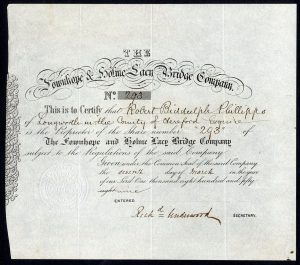 THE
Fownhope & Holme Lacy Bridge Company.
No. 293
This is to Certify that Robert Biddulph Phillipps
of Longworth in the County of Hereford Esquire
is the Proprietor of the Share number "293" of
The Fownhope and Holme Lacy Bridge Company
subject to the Regulations of the said Company
Given under the Common Seal of the said Company
the seventh day of March in the year
of our Lord One thousand eight hundred and fifty
nine
ENTERED
Richd. Underwood SECRETARY.